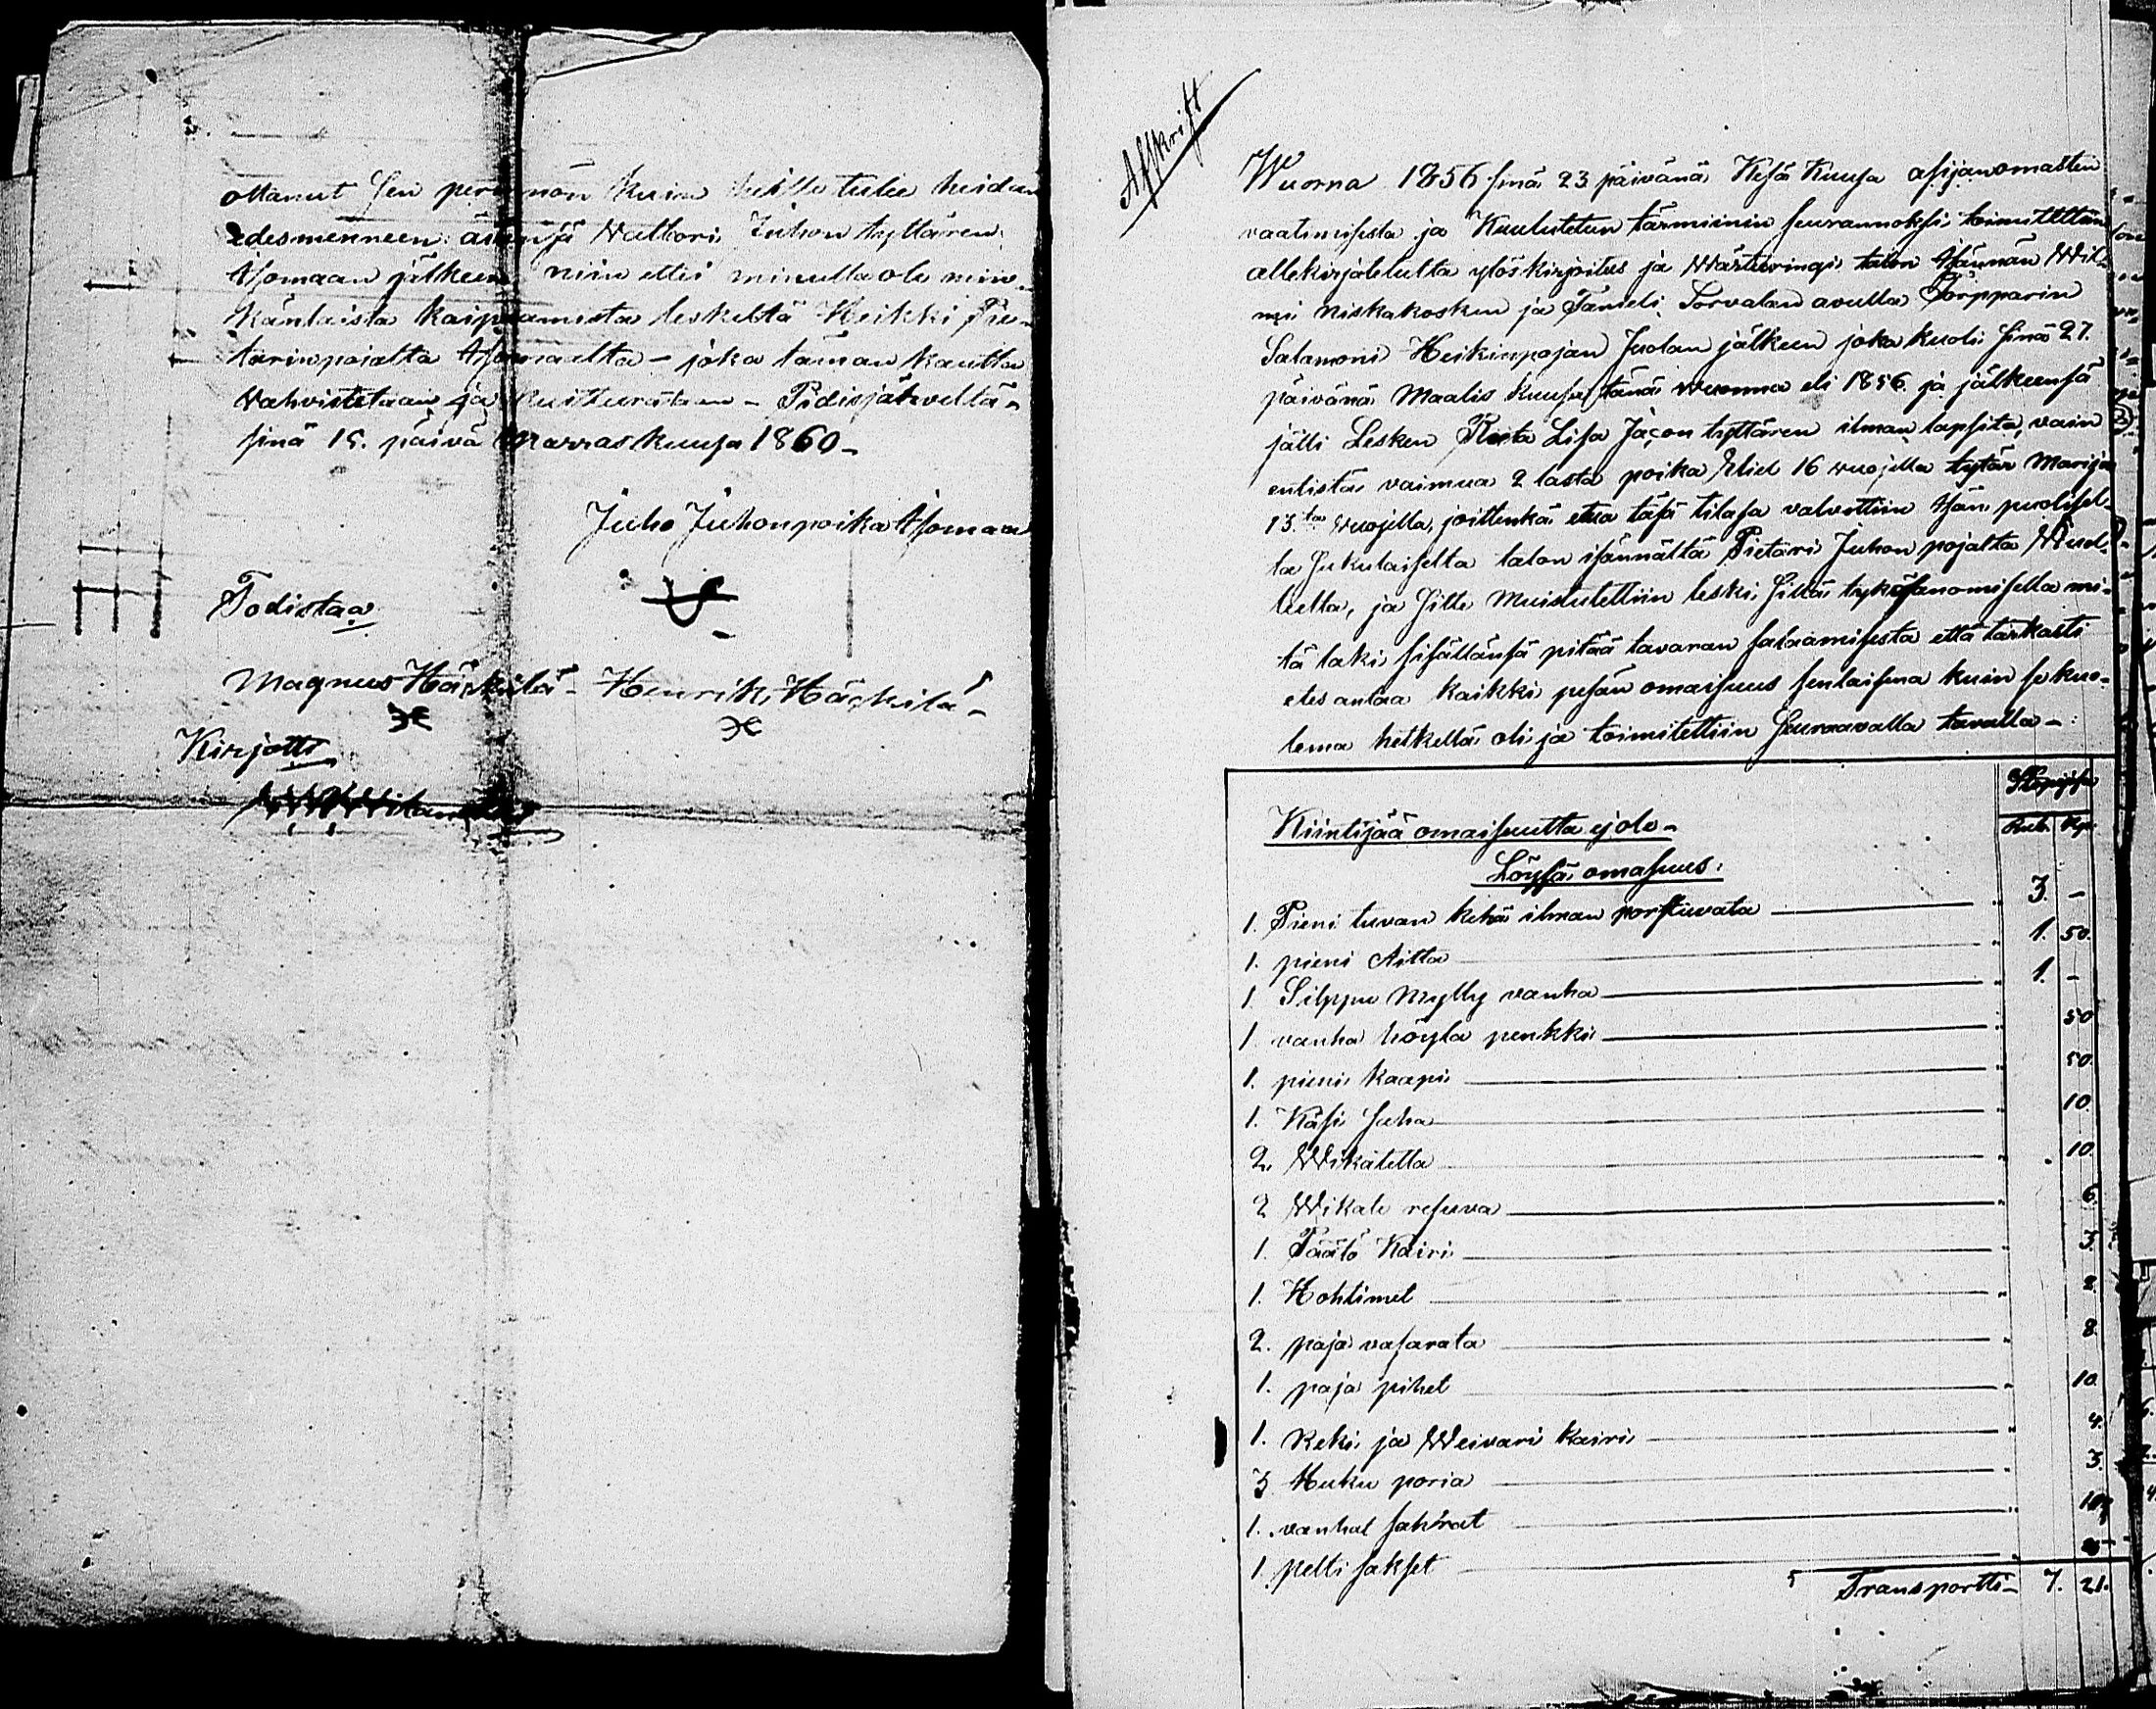 ottanut sen perinnön kuin heille tulee heidän
edesmenneen äitinsä Valbori Juhon tyttären
Ahomaan jälkeen niin ettei minulla ole min-
känlaista kaipaamista leskeltä Heikki Pie-
tarinpojalta Ahomaalta – joka täman kautta
Vahvistetaan ja kuitteerataan – Pidisjärveltä-
sinä 15. päivä Marraskuusa 1860 –
Juho Juhonpoika Ahomaa
Todistaa
Magnus Häckilä – Henrik Häckilä –
Kirjotti
Afskrift
Wuonna 1856 sinä 23 päivänä Kesä Kuusa asijanomasten
vaatimisesta ja Kuulutetun tärmiinin seurannoksi toimitettiin
allekirjoitetulta ylöskirjoitus ja Wärteeringi talon Isännän Wil-
mi Niskakosken ja Tanieli Torvalan avulla Torpparin
Salamoni Heikinpojan Juolan jälkeen joka kuoli sinä 27.
päivänä Maalis Kuusa tänä vuonna eli 1856. ja jälkeensä
jätti Lesken Reeta Lisa Jacon tyttären ilman lapsita, vain
entistä vaimua 2 lasta poika Eliel 16 vuojella tytär Marija
13.ta vuojella, joittenkä etua täsä tilasa valvottiin Isän puolisel-
ta sukulaiselta talon isännältä Pietari Juhon pojalta
ja sitte Muistutettiin leski sillä tykösanomisella mi-
tä laki sisällänsä pitää tavaran salaamisesta että tarkasti
eles antaa kaikki pesän omaisuus senlaisna kuin se kuo-
lema hetkellä oli ja toimitettiin seuraavalla tavalla –
Hopiasa
Rub. Kop.
Kiintijää omaisuutta ej ole –
Löysä omasuus.
1. Pieni tuvan kehä ilman porstuvata 3. –
1. pieni Aitta 1. 50.
1 Silppu Mylly vanha 1. –
1 vanha höylä penkki 50
1. pieni kaapi 50.
1. Käsi saha 10.
2. Wikatetta 10.
2 Wikate resuva 6.
1. Päätö Kairi 3.
1. Hohtimet 2.
2. paja vasarata 8
1. paja pihet 10.
1. Reki ja Weivari kairi 4.
3 Huku poria 3.
1. vanhat sakrat 10
1. pelti sakset
Transportti – 7. 21.